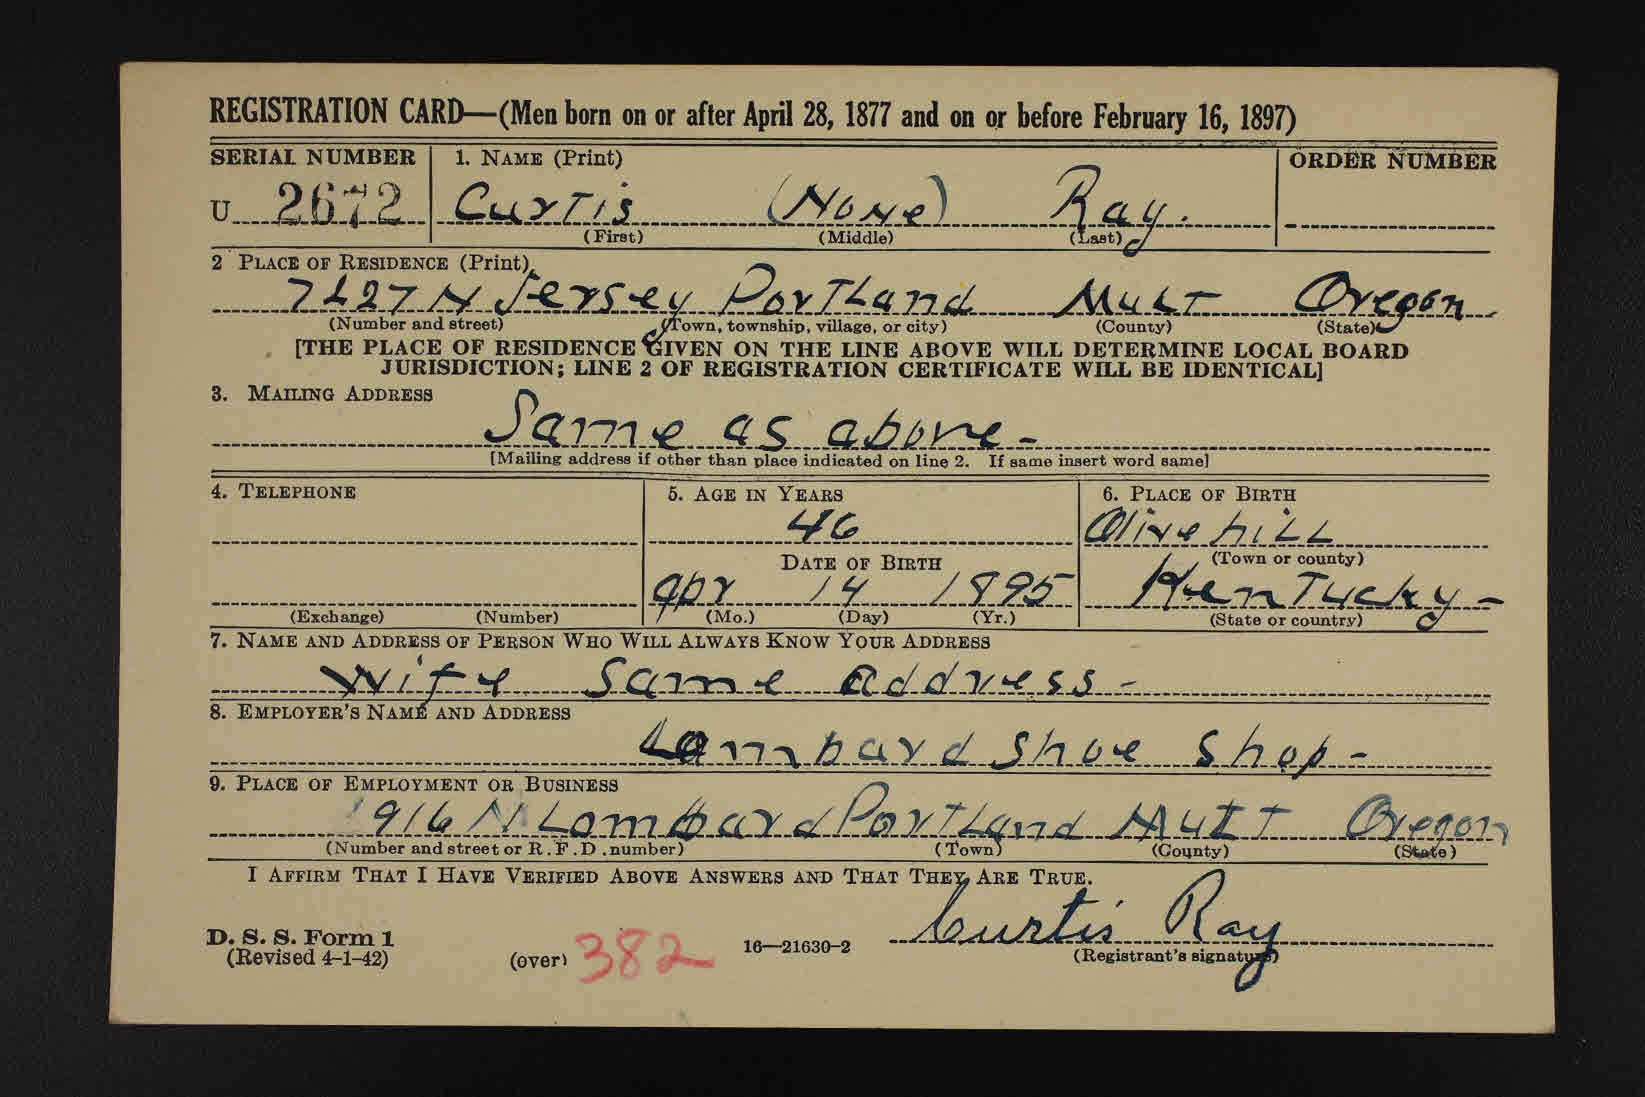 REGISTRATION CARD—(Men born on or after April 28, 1877 and on or before February 16, 1897)
SERIAL NUMBER 1. NAME (Print) ORDER NUMBER
U 2672 Curtis (None) Ray.
(First) (Middle) (Last)
2 PLACE OF RESIDENCE (Print)
7227 N Jersey Portland Mult Oregon
(Number and street) (Town, township, village, or city) (County) (State)
[THE PLACE OF RESIDENCE GIVEN ON THE LINE ABOVE WILL DETERMINE LOCAL BOARD
JURISDICTION; LINE 2 OF REGISTRATION CERTIFICATE WILL BE IDENTICAL]
3. MAILING ADDRESS
Same as above -
[Mailing address if other than place indicated on line 2. If same insert word same]
4. TELEPHONE 5. AGE IN YEARS 6. PLACE OF BIRTH
46 Olive hill
DATE OF BIRTH (Town or county)
apr 14 1895 Kentucky -
(Exchange) (Number) (Mo.) (Day) (Yr.) (State or country)
7. NAME AND ADDRESS OF PERSON WHO WILL ALWAYS KNOW YOUR ADDRESS
Wife Same address -
8. EMPLOYER'S NAME AND ADDRESS
Lambard Shoe Shop -
9. PLACE OF EMPLOYMENT OR BUSINESS
1916 N Lombard Portland Mult Oregon
(Number and street or R.F.D. number) (Town) (County) (State)
I AFFIRM THAT I HAVE VERIFIED ABOVE ANSWERS AND THAT THEY ARE TRUE.
Curtis Ray
D. S. S. Form 1
(Revised 4-1-42) (over) 382 16—21630-2 (Registrant's signature)